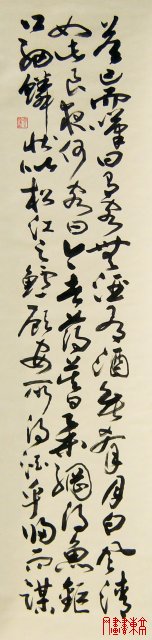 答已而嘆曰有客無酒有酒無肴月白風清
如此良夜何客曰今者薄暮舉網得魚鉅
口細鱗狀似松江之鱸顧安所得酒乎歸而謀